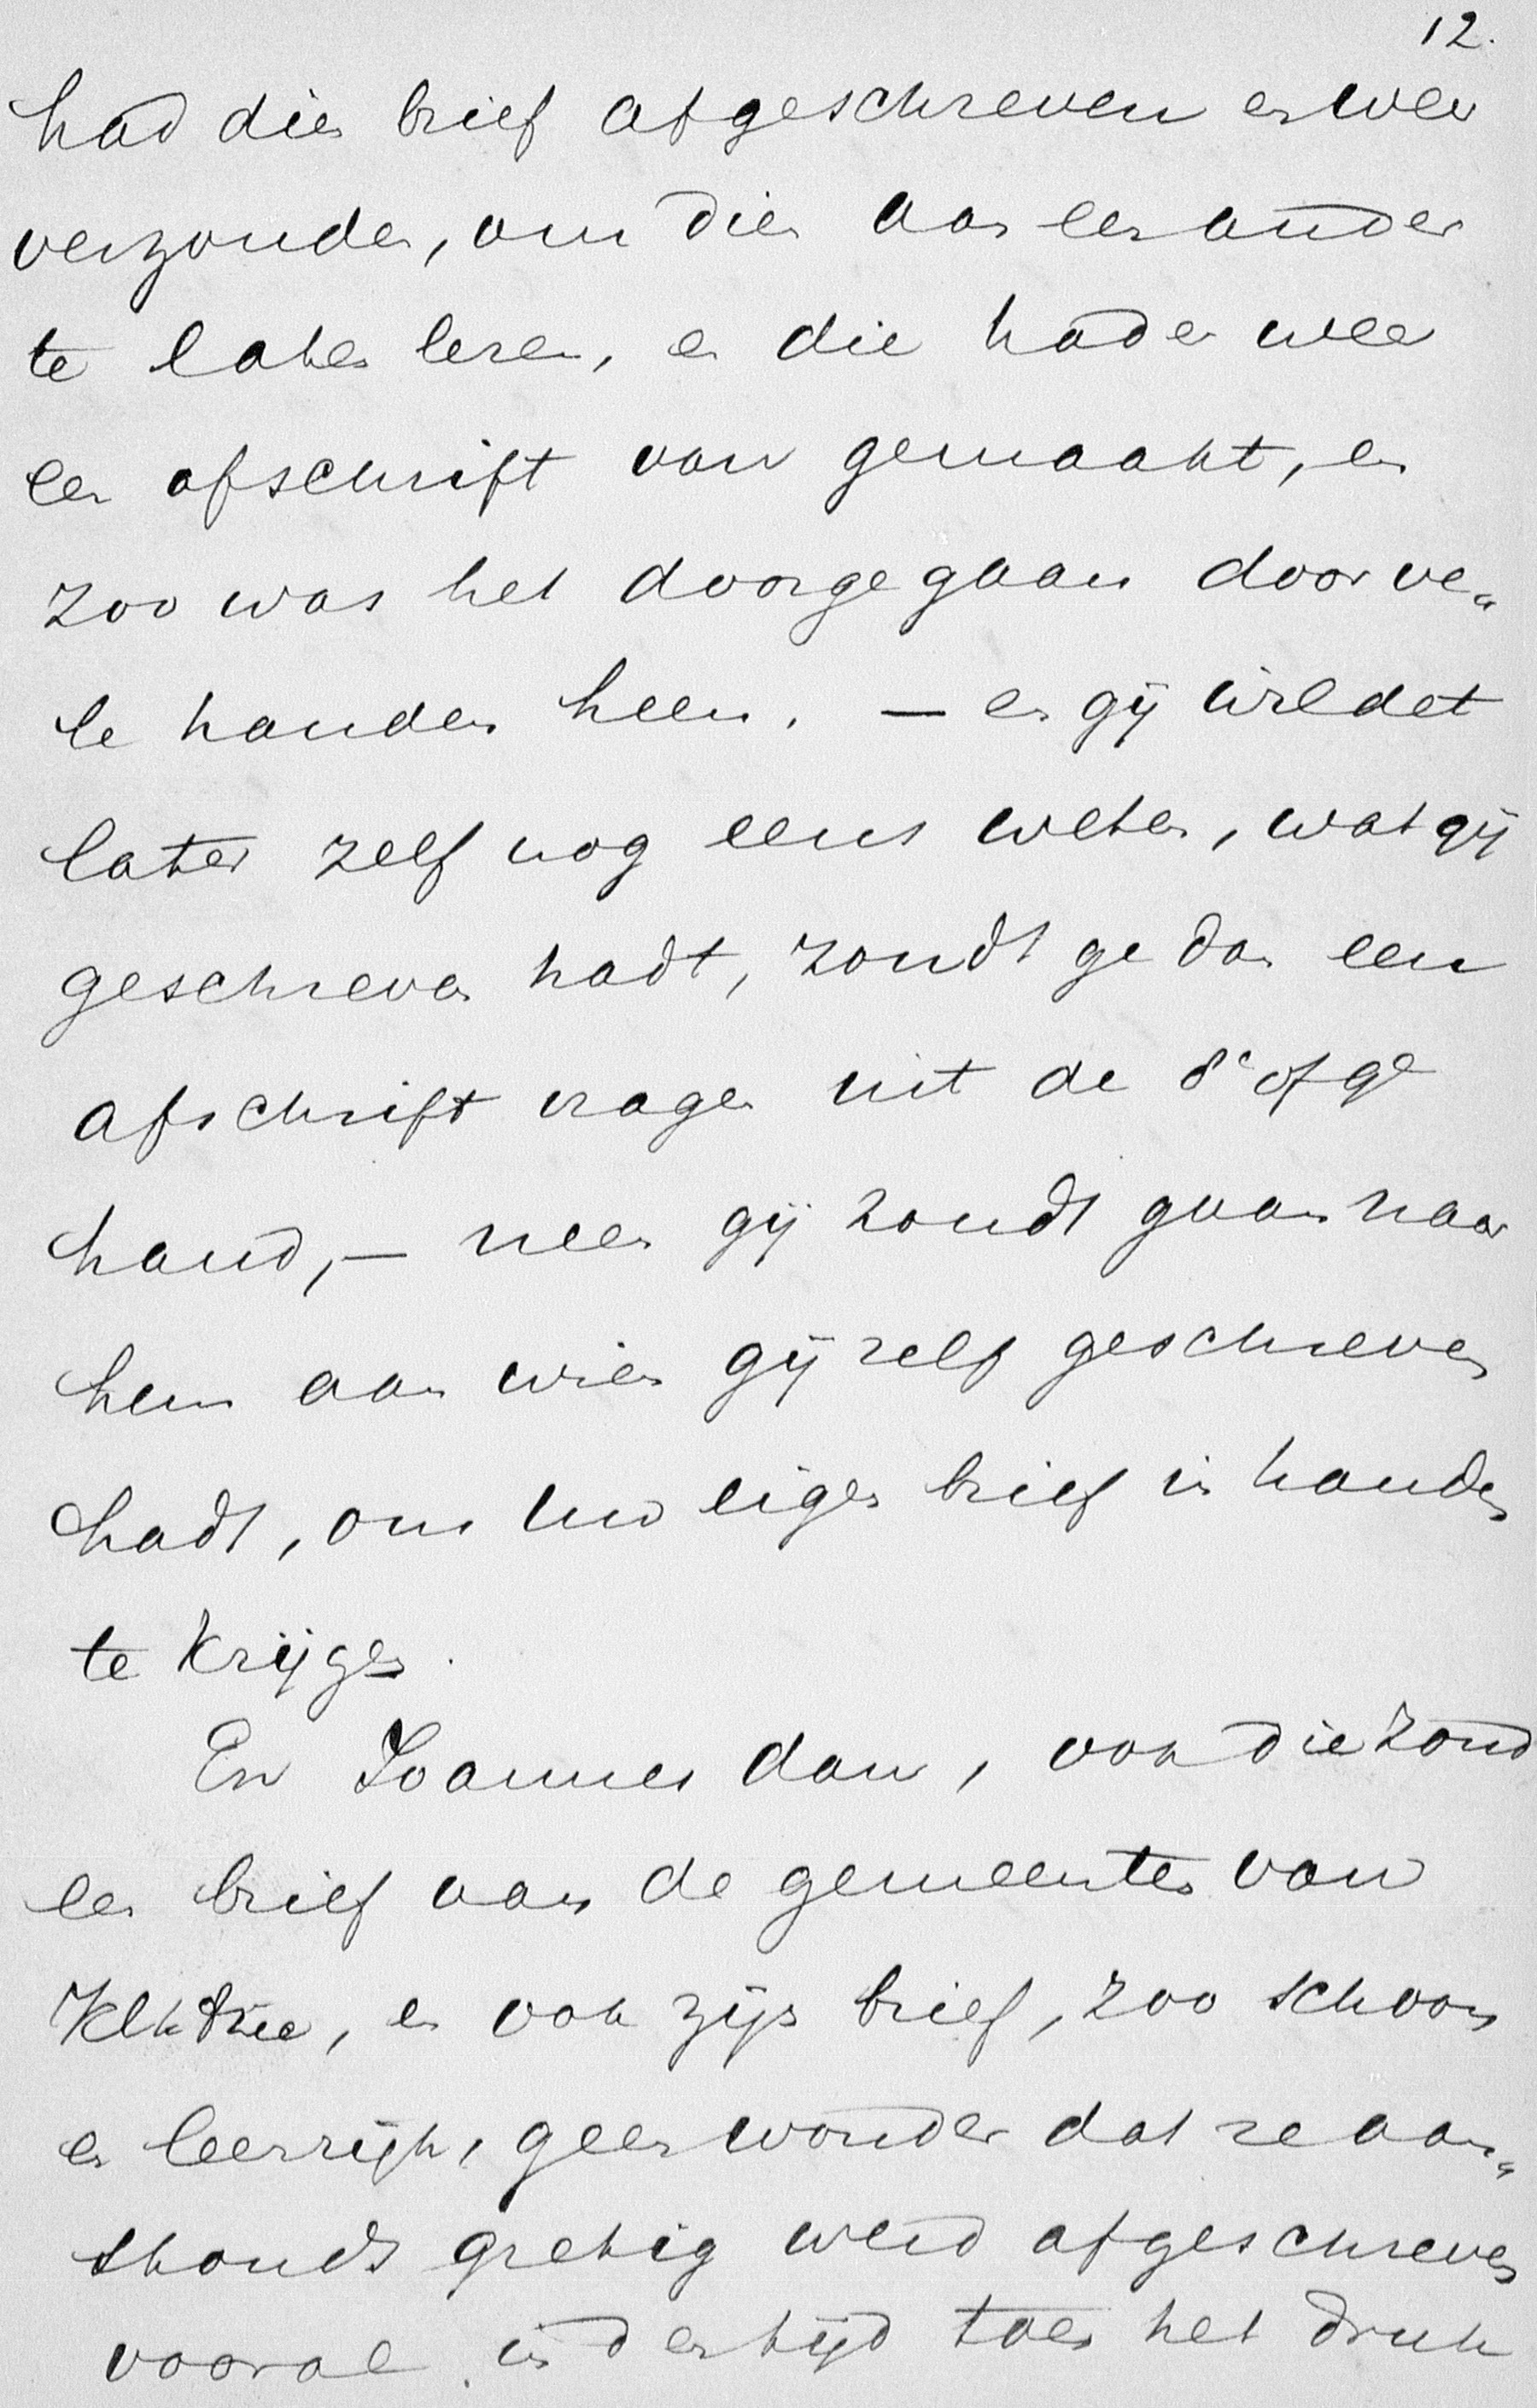 12.
had dien brief afgeschreven en weer
verzonden, om dien aan een ander
te laten lezen, en die hadden weer
een afschrift van gemaakt, en
zoo was het doorgegaan door ve„
le handen heen. — en gij wildet
later zelf nog eens weten, wat gij
geschreven hadt, zoudt ge dan een
afschrift vragen uit de 8e of 9e
hand, — neen gij zoudt gaan naar
hem aan wien gij zelf geschreven
hadt, om uw eigen brief in handen
te krijgen.
En Joannes dan, ook die zond
een brief aan de gemeenten van
en ook zijn brief, zoo schoon
en leerrijk, geen wonder dat ze aan„
stonds gretig werd afgeschreven
vooral in den tijd toen het druk